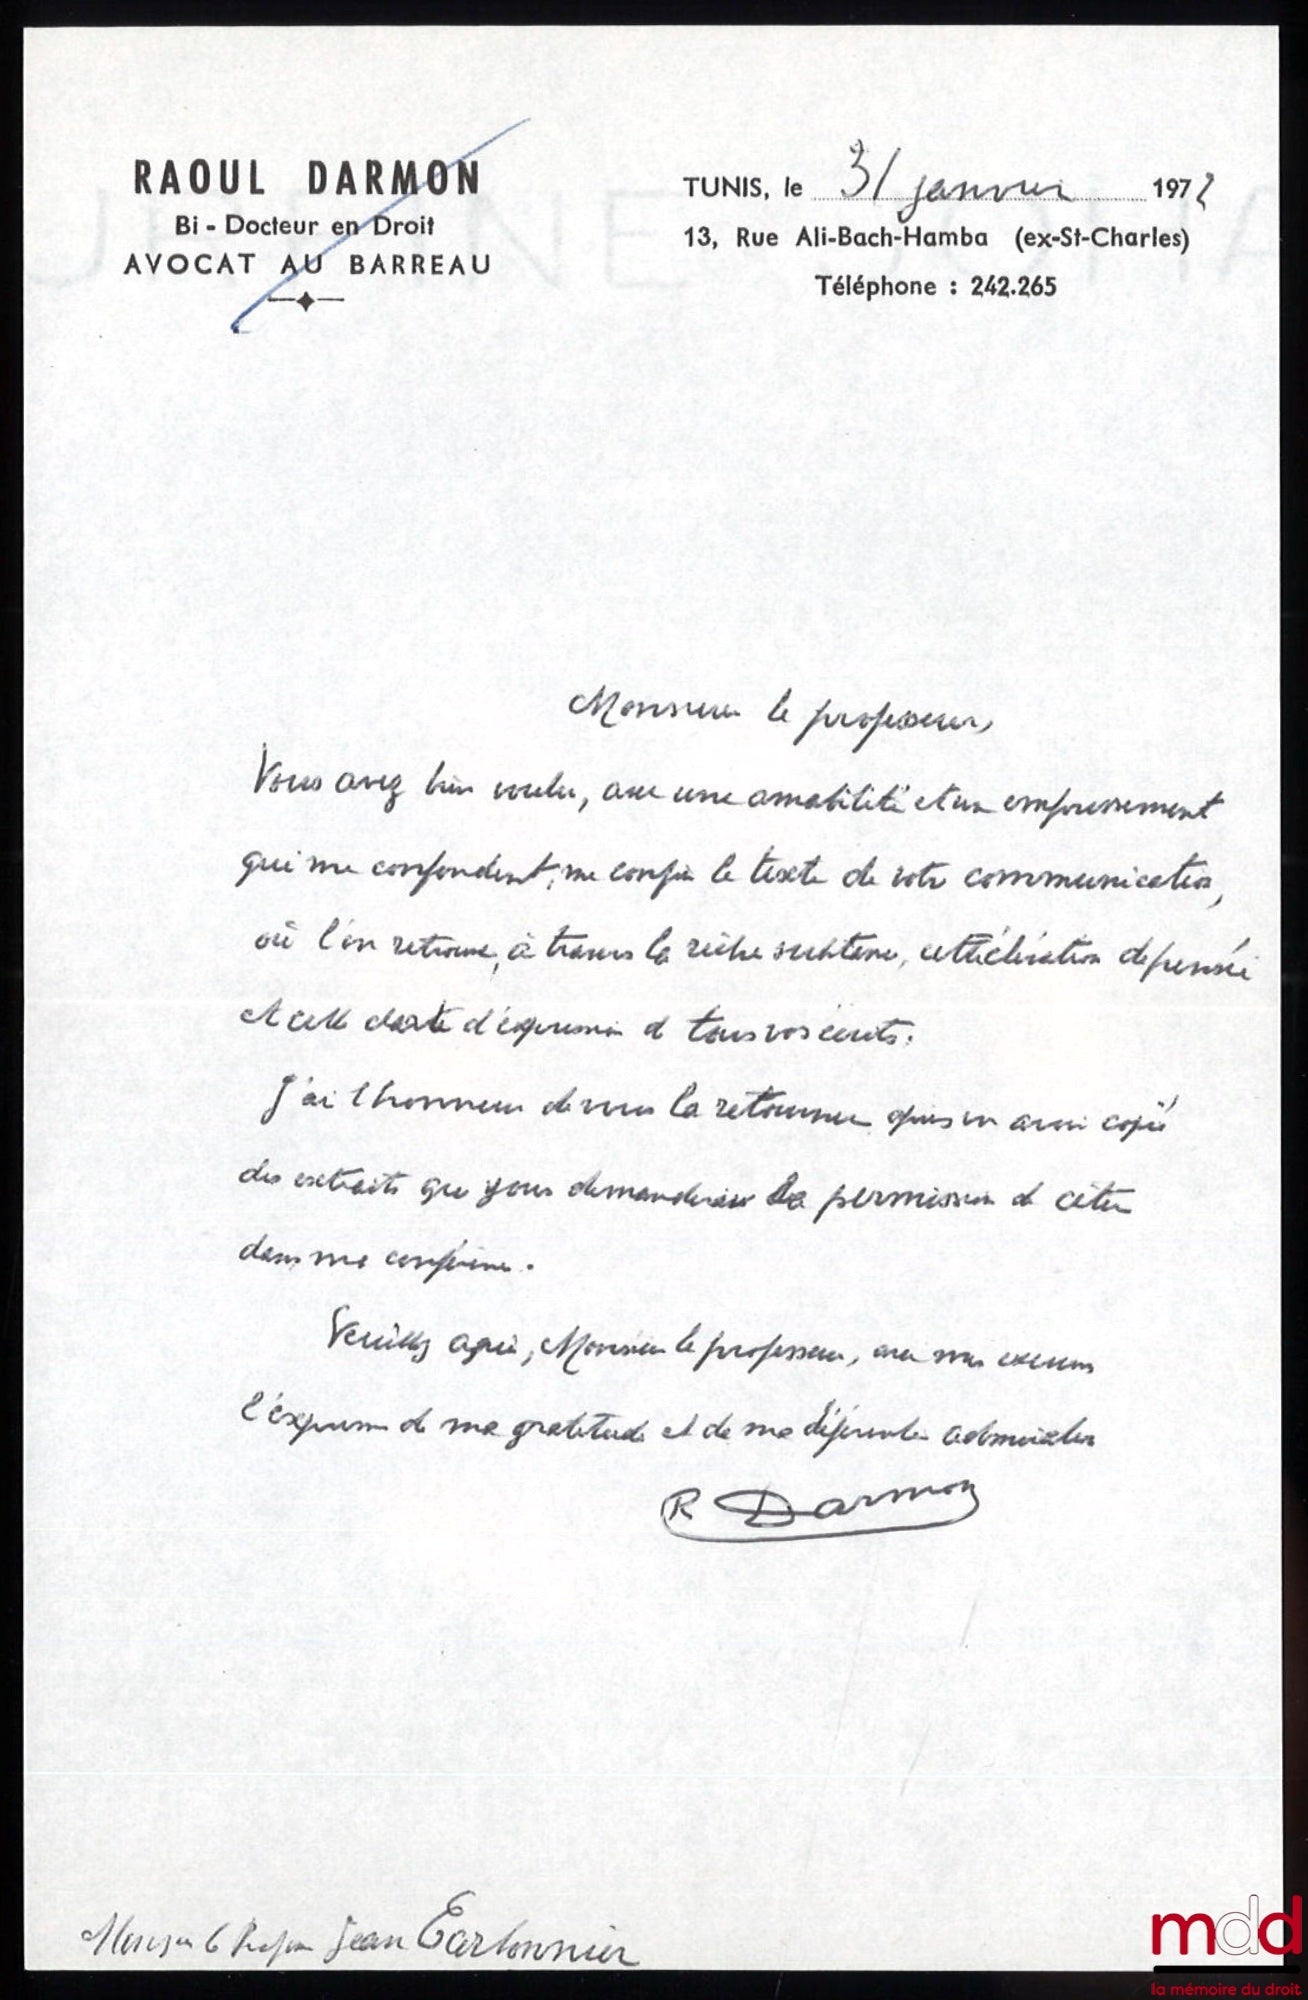 RAOUL DARMON
Bi - Docteur en Droit
AVOCAT AU BARREAU
TUNIS, le 31 janvier 1972
13, Rue Ali-Bach-Hamba (ex-St-Charles)
Téléphone : 242.265
Monsieur le professeur,
Vous avez bien voulu, avec une amabilité et un empressement
qui me confondent, me confier le texte de votre communication,
où l'on retrouve, à travers la riche substance, cette élévation de pensée
et cette clarté d'expression de tous vos écrits.
J'ai l'honneur de vous la retourner après en avoir copié
des extraits que je vous demanderais la permission de citer
dans ma conférence.
Veuillez agréer, Monsieur le professeur, avec mes excuses
l'expression de ma gratitude et de ma déférente admiration
R Darmon
Monsieur le Professeur Jean Carbonnier
mdd
la mémoire du droit